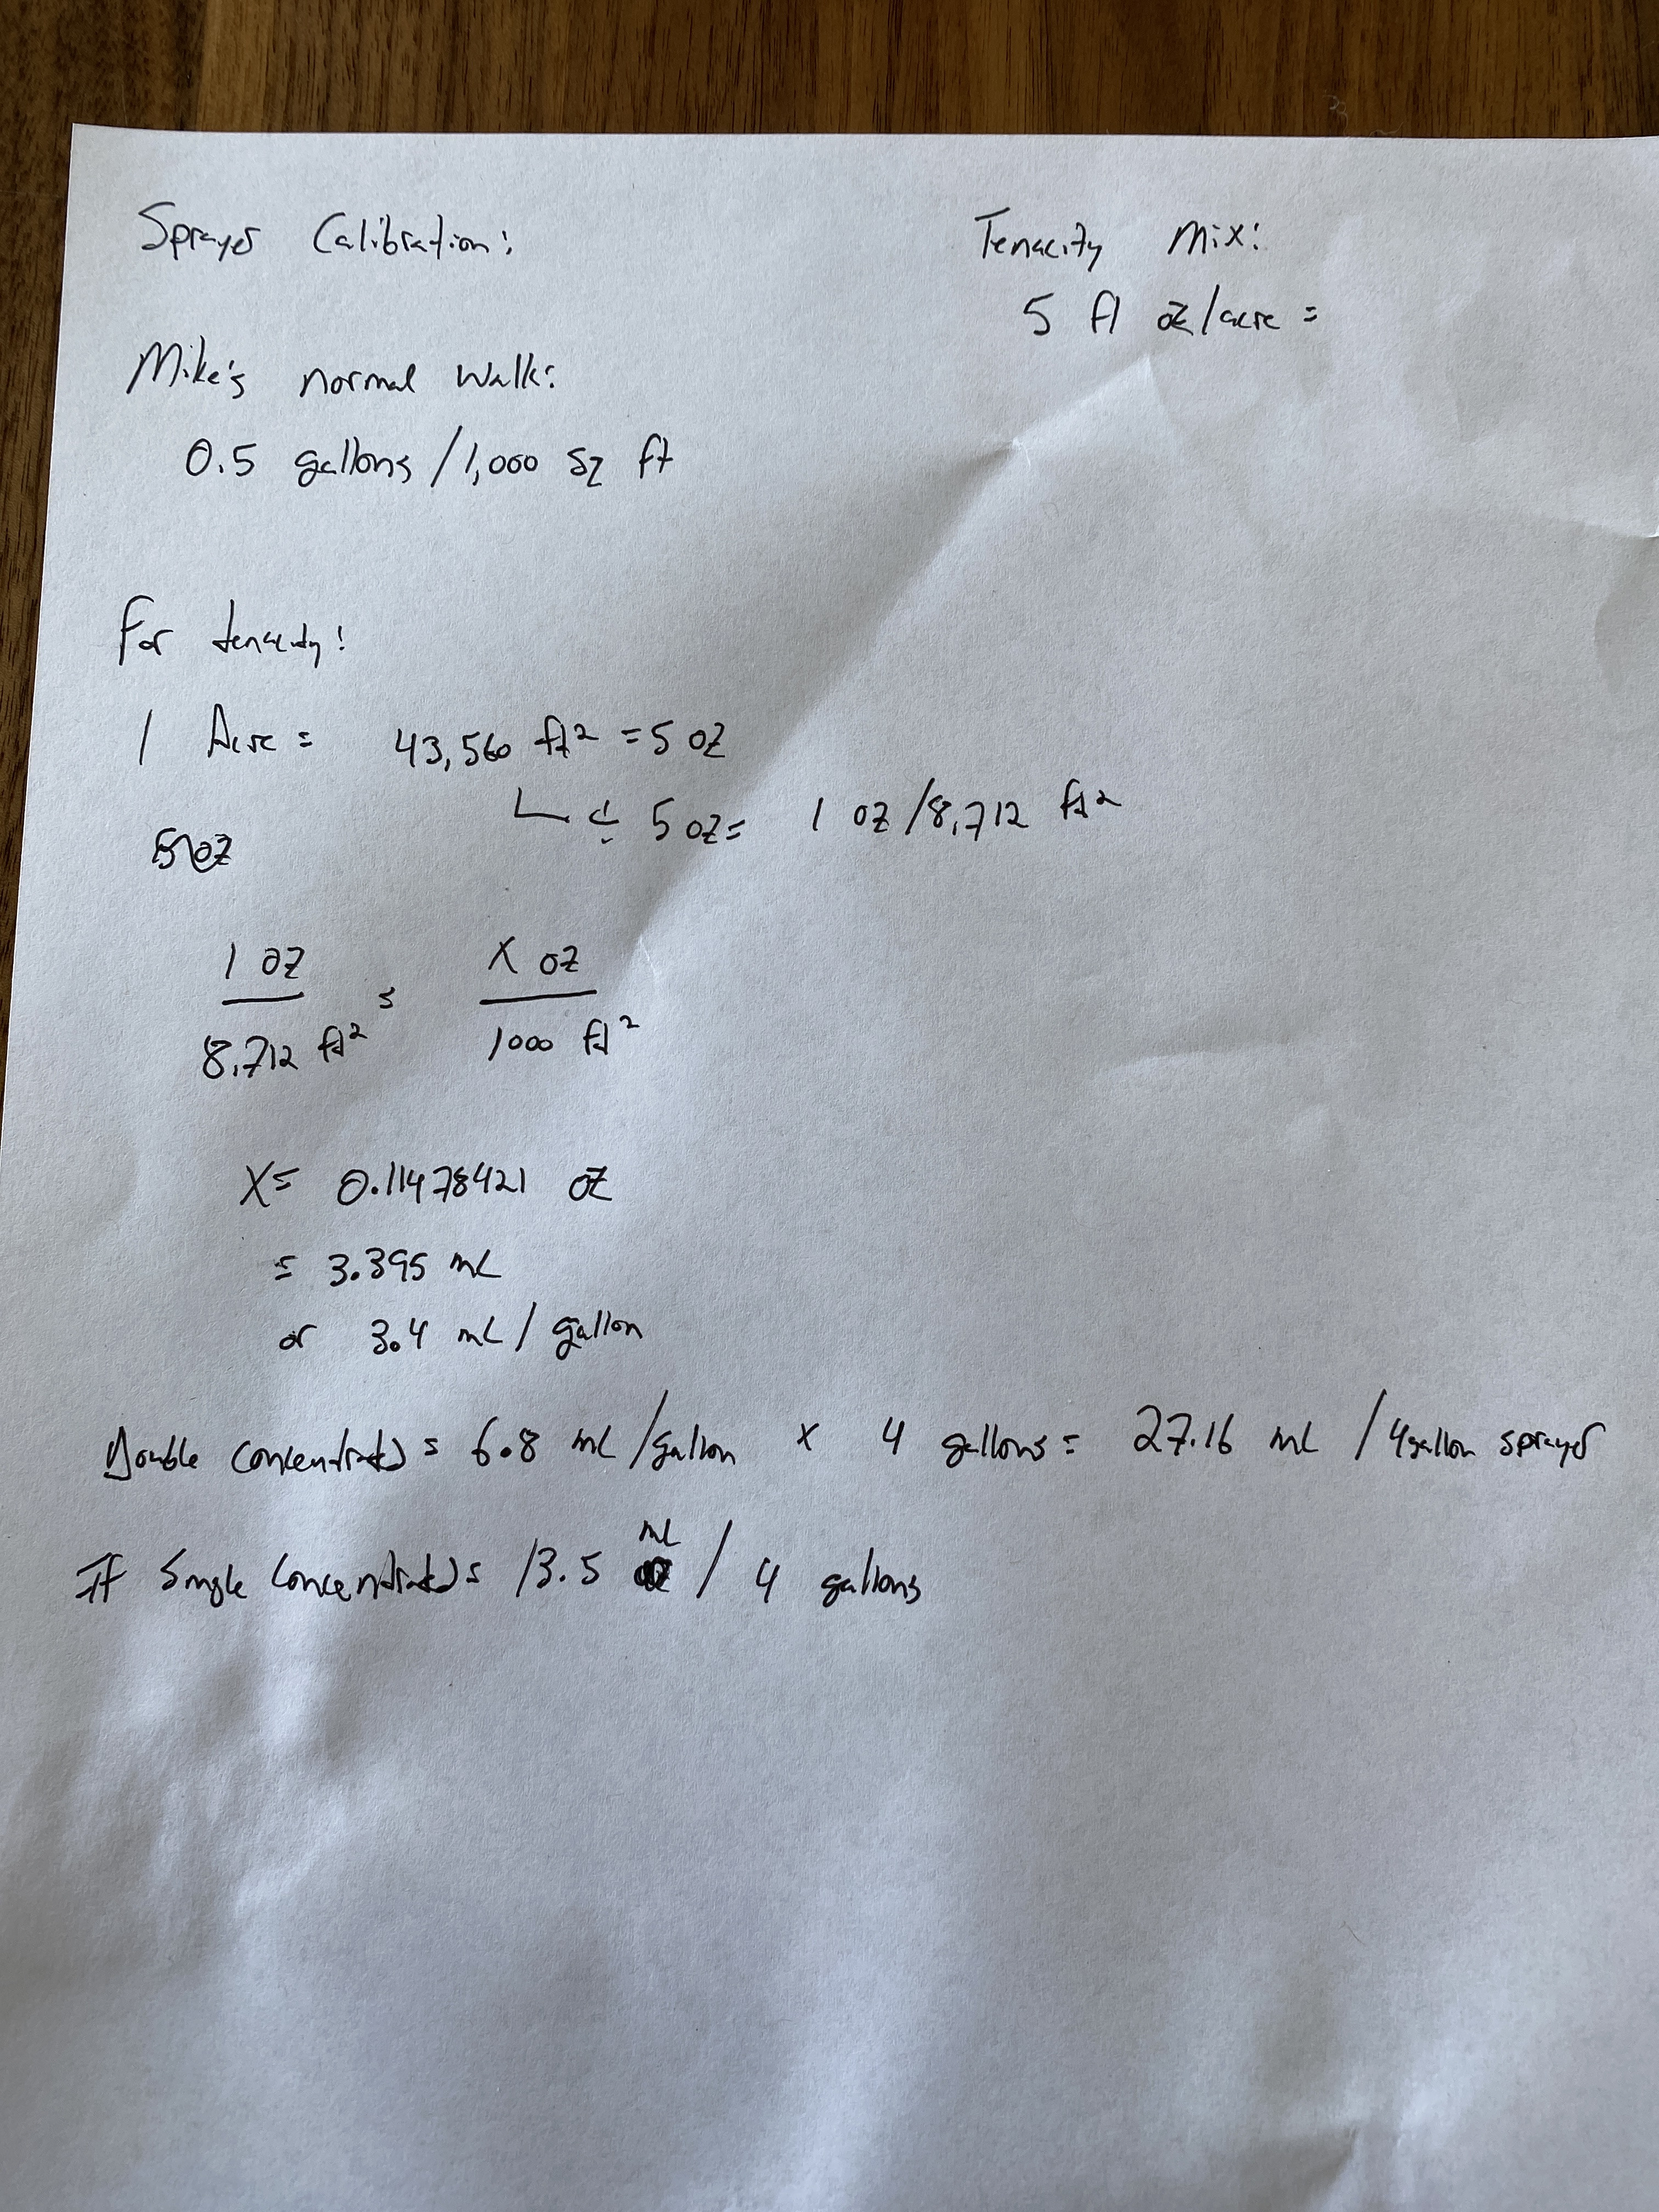 Sprayer Calibration:
Tenacity Mix:
5 fl oz/acre =
Mike's normal walk:
0.5 gallons/1,000 sq ft
For tenacity:
1 Acre = 43,560 ft² = 5 oz
÷ 5 oz = 1 oz/8,712 ft²
1 oz / 8,712 ft² = X oz / 1000 ft²
X = 0.11478421 oz
= 3.395 mL
or 3.4 mL/gallon
Double concentrated = 6.8 mL/gallon x 4 gallons = 27.16 mL / 4 gallon sprayer
If Single concentrated = 13.5 mL / 4 gallons